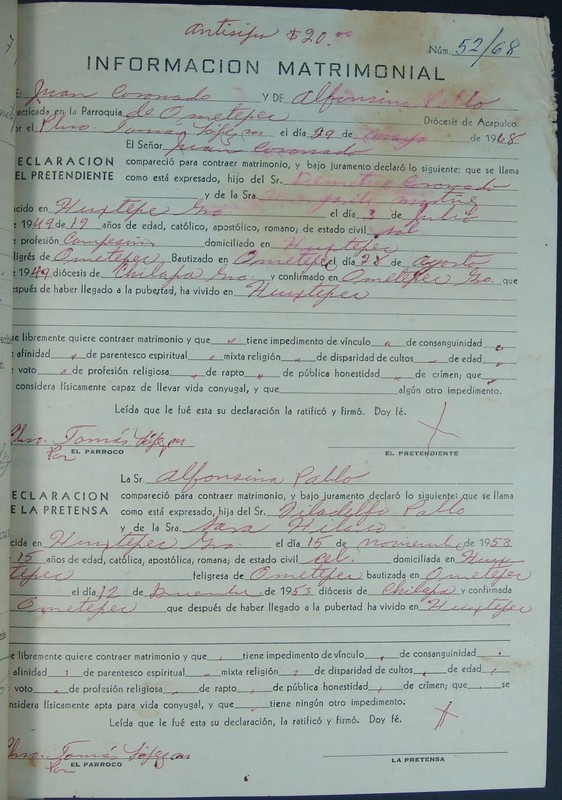 antisipo $20.00
Núm. 52/68
INFORMACION MATRIMONIAL
E Juan Coronado Y DE Alfonsina Pablo
acticada en la Parroquia de Ometepec Diócesis de Acapulco
or el Pbro. Tomás López el día 29 de de 1968
El Señor Juan Coronado
ECLARACION compareció para contraer matrimonio, y bajo juramento declaró lo siguiente: que se llama
EL PRETENDIENTE como está expresado, hijo del Sr. Demetrio Coronado
y de la Sra. Margarita
cido en Huixtepec Gro el día 3 de Julio
e 1949 de 19 años de edad, católico, apostólico, romano; de estado civil sol
e profesión Campesino domiciliado en Huixtepec
ligrés de Ometepec Bautizado en Ometepec el día 28 de agosto
e 1949 diócesis de Chilapa Gro. y confirmado en Ometepec Gro. que
espués de haber llegado a la pubertad, ha vivido en Huixtepec
e libremente quiere contraer matrimonio y que tiene impedimento de vínculo de consanguinidad
e afinidad de parentesco espiritual mixta religión de disparidad de cultos de edad
e voto de profesión religiosa de rapto de pública honestidad de crimen; que
considera físicamente capaz de llevar vida conyugal, y que algún otro impedimento.
Leída que le fué esta su declaración la ratificó y firmó. Doy fé.
Pbro. Tomás López
EL PARROCO EL PRETENDIENTE
La Sr. Alfonsina Pablo
ECLARACION compareció para contraer matrimonio, y bajo juramento declaró lo siguiente: que se llama
E LA PRETENSA como está expresado, hija del Sr. Filadelfo Pablo
y de la Sra. Sara Hilario
cida en Huixtepec Gro. el día 15 de noviembre de 1953
15 años de edad, católica, apostólica, romana; de estado civil cel. domiciliada en Huix
tepec feligresa de Ometepec bautizada en Ometepec
el día 12 de de 1953 diócesis de Chilapa y confirmada
Ometepec que después de haber llegado a la pubertad ha vivido en Huixtepec
e libremente quiere contraer matrimonio y que tiene impedimento de vínculo de consanguinidad
afinidad de parentesco espiritual mixta religión de disparidad de cultos de edad
voto de profesión religiosa de rapto de pública honestidad de crimen; que se
nsidera físicamente apta para vida conyugal, y que tiene ningún otro impedimento.
Leída que le fué esta su declaración, la ratificó y firmó. Doy fé.
Pbro. Tomás López
EL PARROCO LA PRETENSA